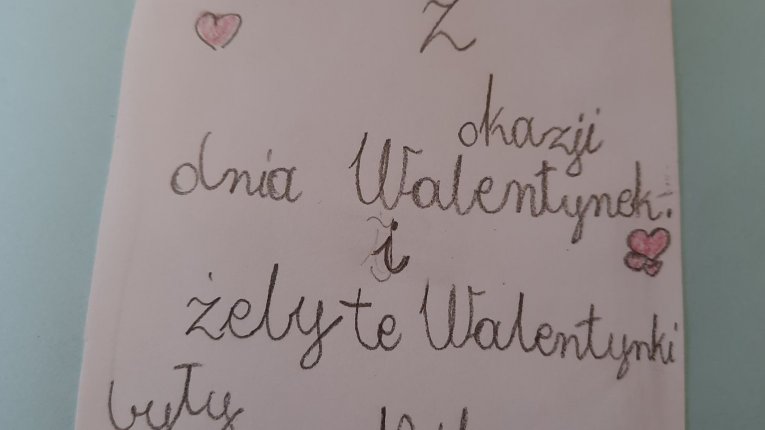 Z
okazji
dnia Walentynek:
i
żeby te Walentynki
były